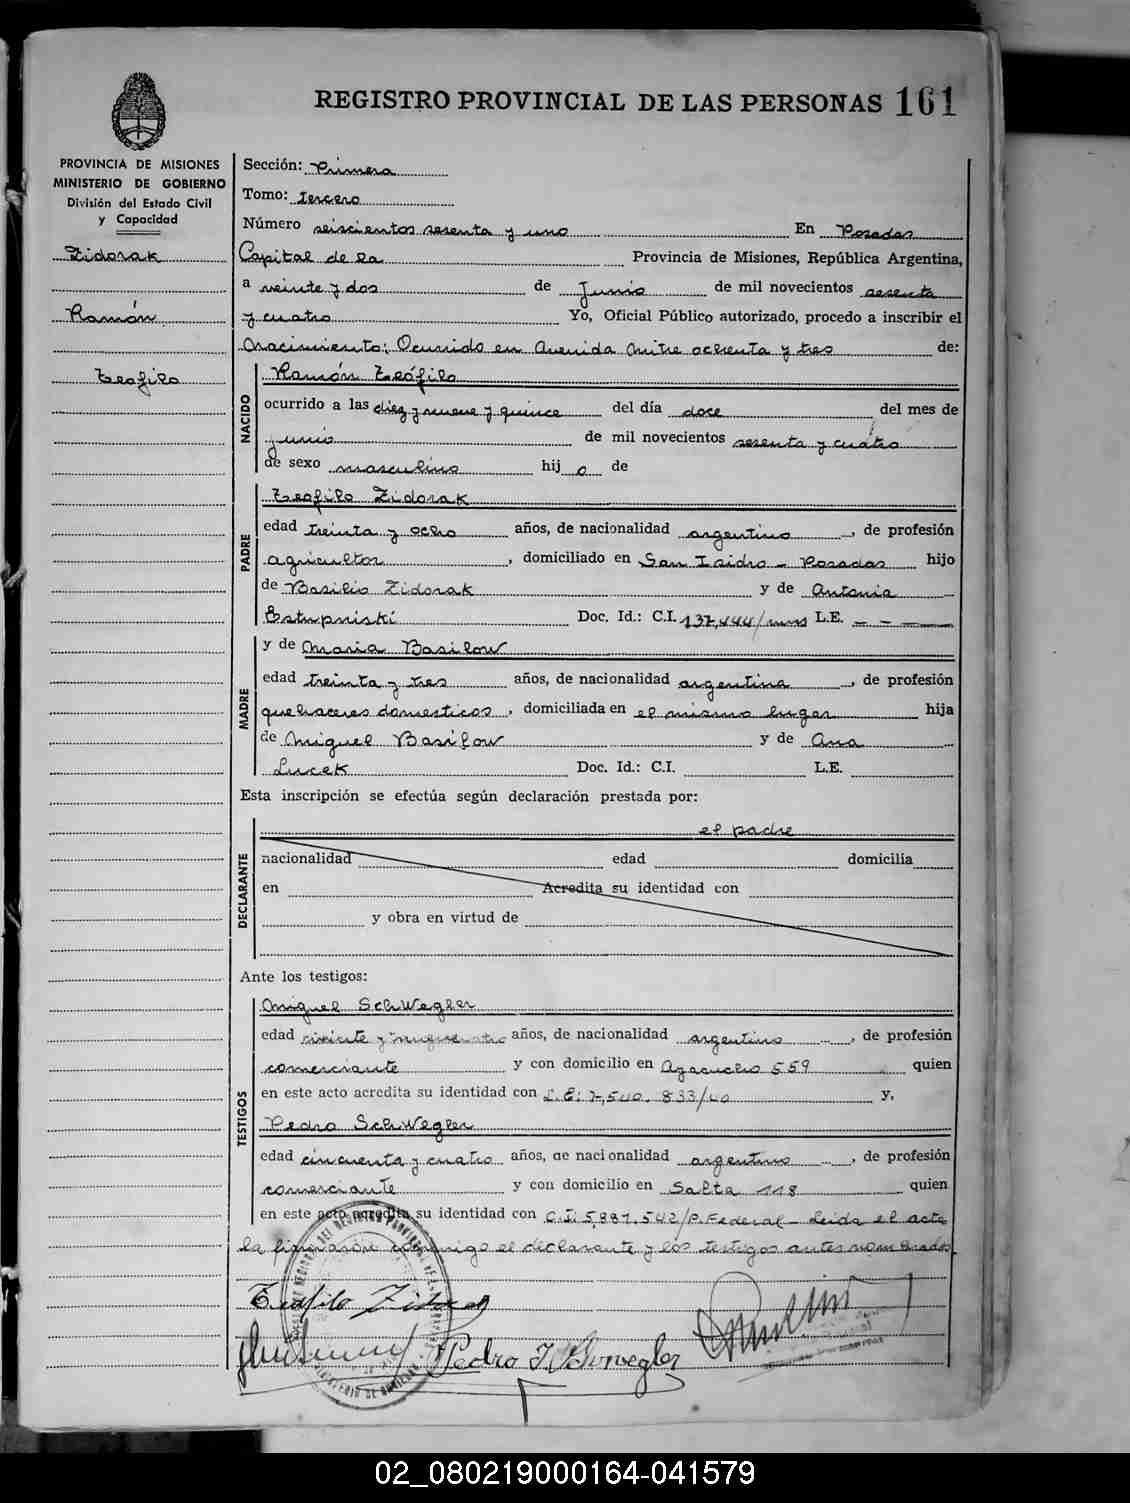 REGISTRO PROVINCIAL DE LAS PERSONAS 161
PROVINCIA DE MISIONES
MINISTERIO DE GOBIERNO
División del Estado Civil
y Capacidad
Zidorak
Ramón
Teofilo
Sección: Primera
Tomo: tercero
Número seiscientos sesenta y uno En Posadas
Capital de la Provincia de Misiones, República Argentina,
a veinte y dos de Junio de mil novecientos sesenta
y cuatro Yo, Oficial Público autorizado, procedo a inscribir el
nacimiento: Ocurrido en Avenida Mitre ochenta y tres de:
NACIDO
Ramón Teófilo
ocurrido a las diez y nueve y quince del día doce del mes de
junio de mil novecientos sesenta y cuatro
de sexo masculino hij o de
PADRE
Teofilo Zidorak
edad treinta y ocho años, de nacionalidad argentino, de profesión
agricultor, domiciliado en San Isidro - Posadas hijo
de Basilio Zidorak y de Antonia
Estupniski Doc. Id.: C.I. 137,444/mns L.E. - - -
MADRE
y de Maria Basilow
edad treinta y tres años, de nacionalidad argentina, de profesión
quehaceres domesticos, domiciliada en el mismo lugar hija
de Miguel Basilow y de Ana
Lucek Doc. Id.: C.I. L.E.
Esta inscripción se efectúa según declaración prestada por:
DECLARANTE
el padre
nacionalidad edad domicilia
en Acredita su identidad con
y obra en virtud de
Ante los testigos:
TESTIGOS
Miguel SchWegler
edad años, de nacionalidad argentino, de profesión
comerciante y con domicilio en Ayacucho 559 quien
en este acto acredita su identidad con L.E: 7,540.833/ y,
Pedro SchWegler
edad cincuenta y cuatro años, de nacionalidad argentino, de profesión
comerciante y con domicilio en Salta 118 quien
en este acto acredita su identidad con C.I: 5,887,542/P.Federal - Leida el acta
la firmarán conmigo el declarante y los testigos antes nombrados.
Teofilo Zidorak
Pedro
02_080219000164-041579